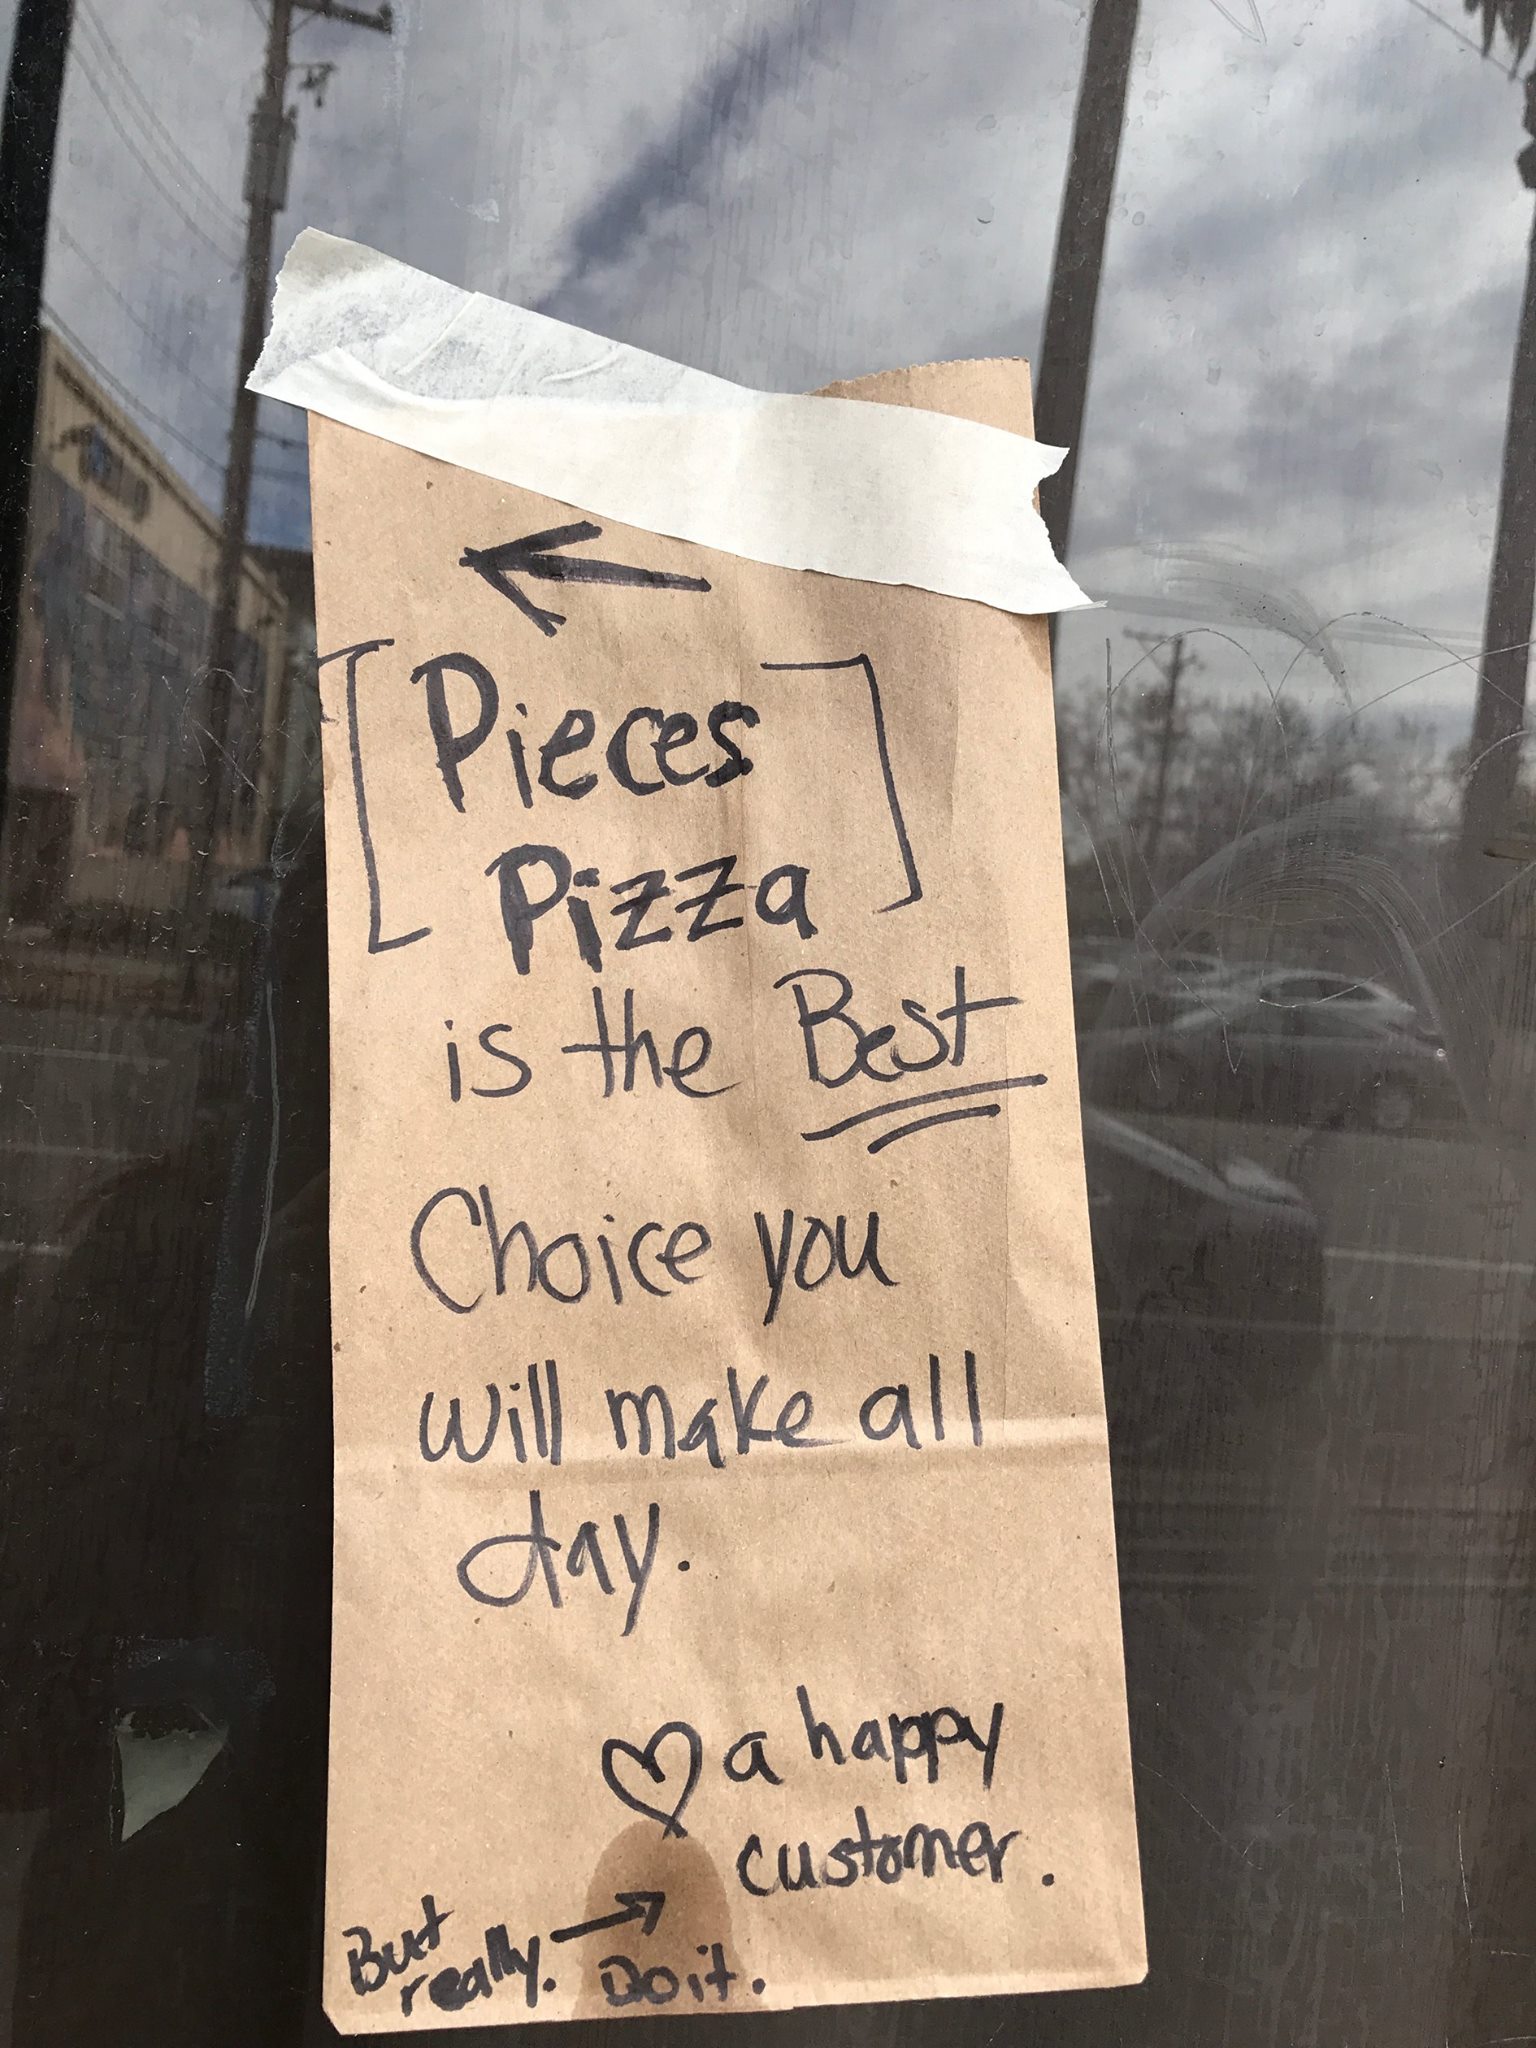 ←
[Pieces
Pizza]
is the Best
Choice you
will make all
day.
♡ a happy
customer.
But
really. → Do it.